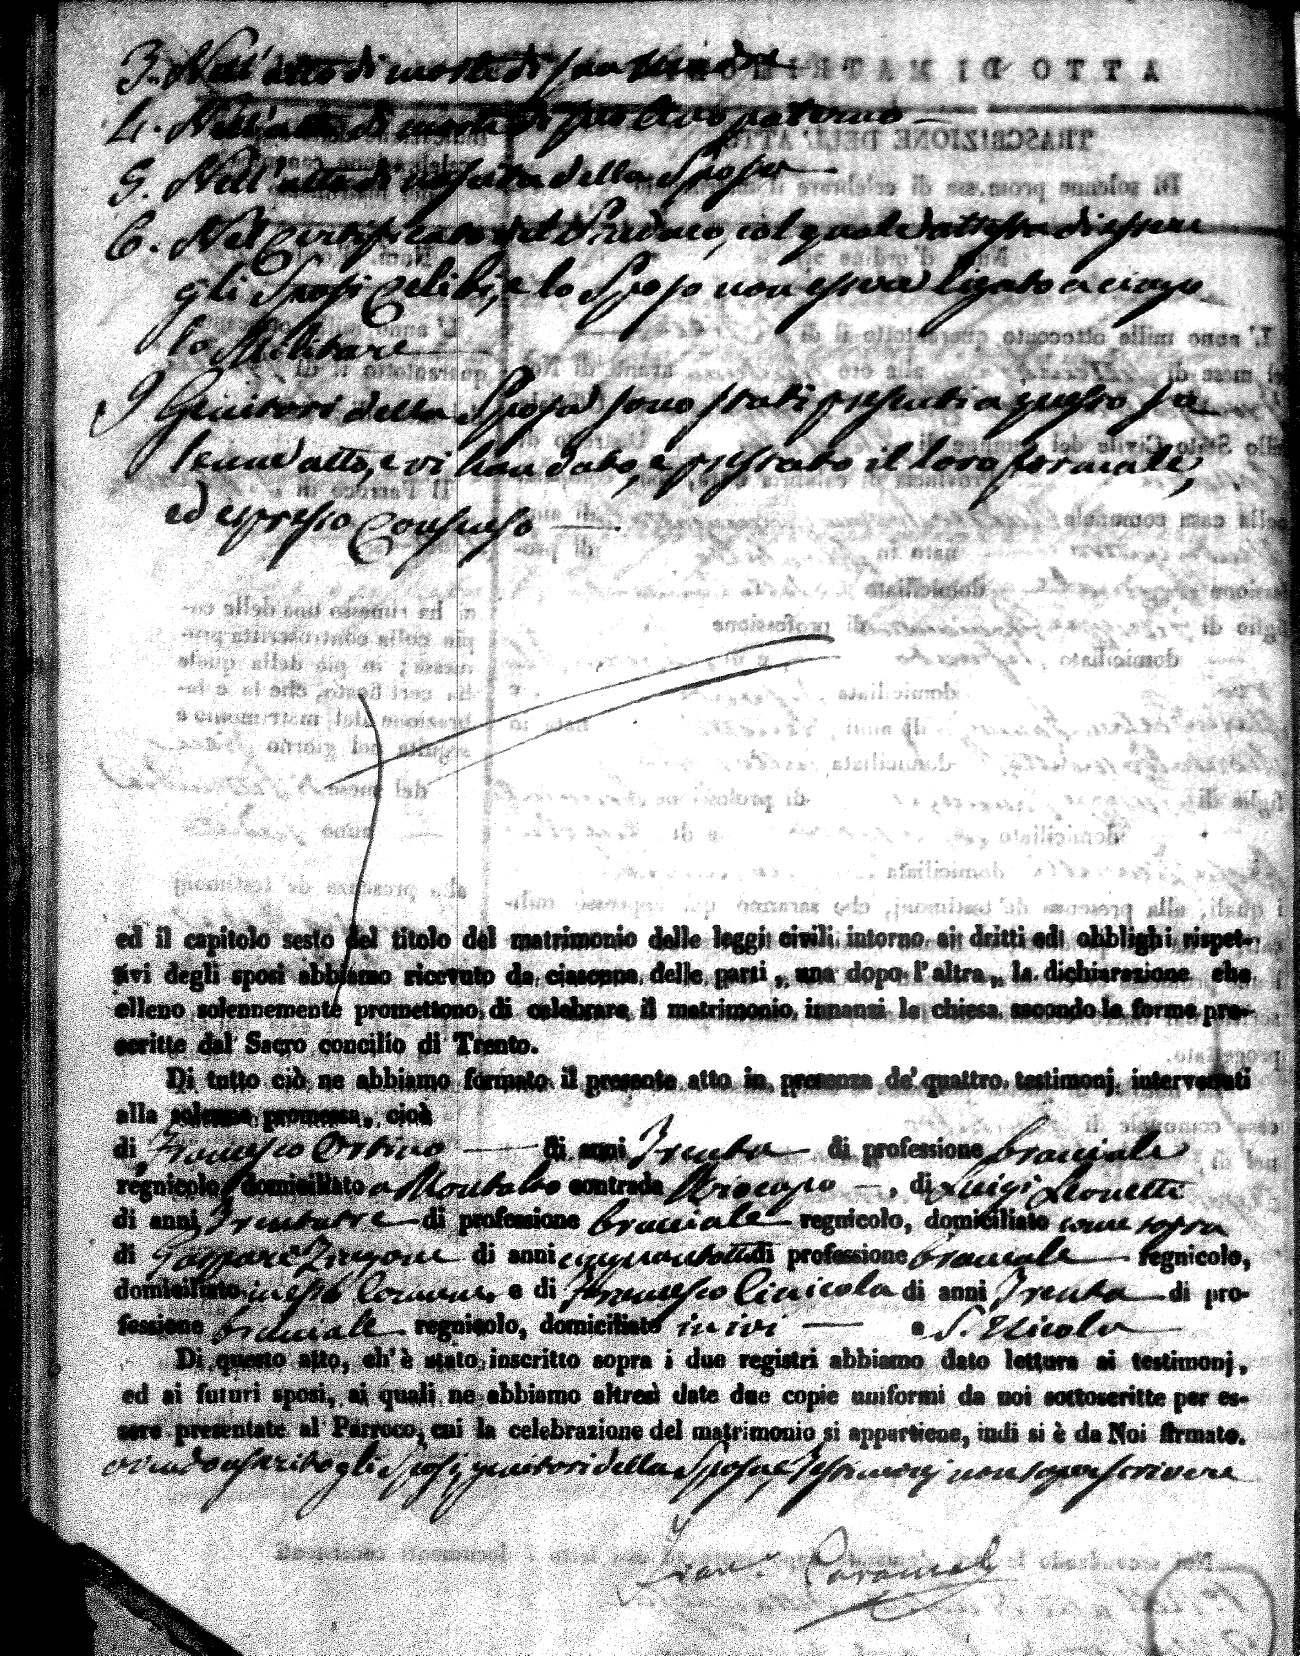 3. Nell'atto di morte di sua madre
4. Nell'atto di morte di suo Avo paterno
5. Nell'atto di nascita della Sposa
6. Nel Certificato del Sindaco, col quale attesta di essere
gli Sposi Celibi, e lo Sposo non essere ligato a vinco
lo Militare
I Genitori della Sposa sono stati presenti a questo so
lenne atto, e vi han dato, e prestato il loro formale,
ed espresso Consenso
ed il capitolo sesto del titolo del matrimonio delle leggi civili intorno ai dritti ed obblighi rispet-
tivi degli sposi abbiamo ricevuto da ciascuna delle parti, una dopo l'altra, la dichiarazione che
elleno solennemente promettono di celebrare il matrimonio innanzi la chiesa secondo le forme pre-
scritte dal Sacro concilio di Trento.
Di tutto ciò ne abbiamo formato il presente atto in presenza de' quattro testimonj intervenuti
alla solenne promessa, cioè
di Francesco Ortino di anni Trenta di professione bracciale
regnicolo, domiciliato a Montalto contrada, di Luigi Leonetti
di anni Trentatre di professione bracciale regnicolo, domiciliato come sopra
di Gaspare di anni cinquantotto di professione bracciale regnicolo,
domiciliato in esto Comune, e di Francesco Cinicola di anni Trenta di pro-
fessione bracciale regnicolo, domiciliato in ivi a S. Nicola
Di questo atto, ch'è stato inscritto sopra i due registri abbiamo dato lettura ai testimonj,
ed ai futuri sposi, ai quali ne abbiamo altresì date due copie uniformi da noi sottoscritte per es-
sere presentate al Parroco, cui la celebrazione del matrimonio si appartiene, indi si è da Noi firmato.
avendo asserito gli Sposi, genitori della Sposa e Testimonj non saper scrivere